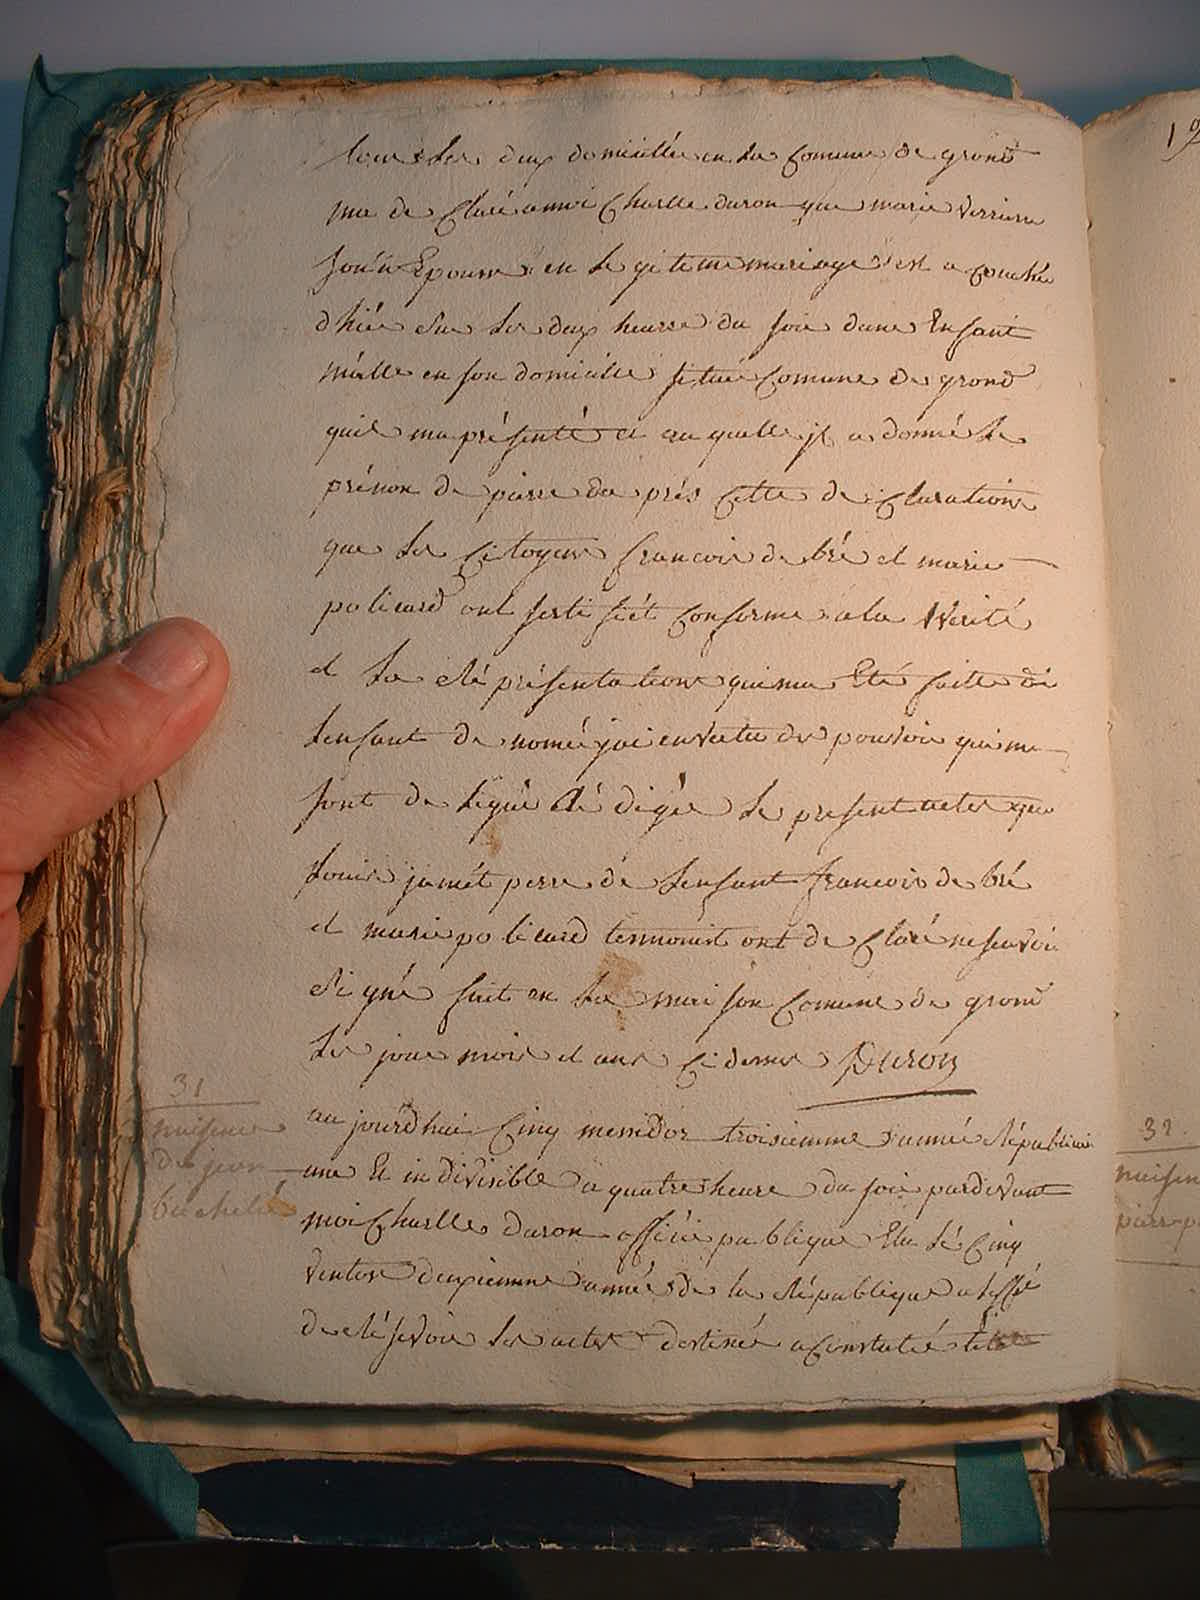 tous les deux domicillié en la Comune de grond
ma de Claré a moi Charlle duron que marie verrine
son Epouse en le gitime mariage est a couchée
dhiér sur les deux heures du soir dune Enfant
malle en son domicille situé Comune de grond
quil ma présenté et au quelle jl a donné le
prénon de pierre da prés cette de Claration
que les Citoyens francois de bré et marie
policard ont serti fiét Conforme a la Verité
et la ré présentation qui ma Eté faitte de
lenfant de nomé jai en vertu des pouvoir qui me
sont de légué Ré digée le present actes que
louis jamét perre de lenfant francois de bré
et marie policard temmoint ont de Claré ne savoir
signé fait en la maison Comune de grond
les jour mois et ans Ci dessus Duron
31
naisence
de jean
bachelé
au jourdhui Cinq messidor troisiemme année Républiqu
une Et in divisible a quatre heure du soir pardevant
moi Charlle duron officié publique Elu lé Cinq
ventos deuxiemme année de la République a leffé
de Ré sevoir les actes destinés a Constaté
32
naisen
pierre p